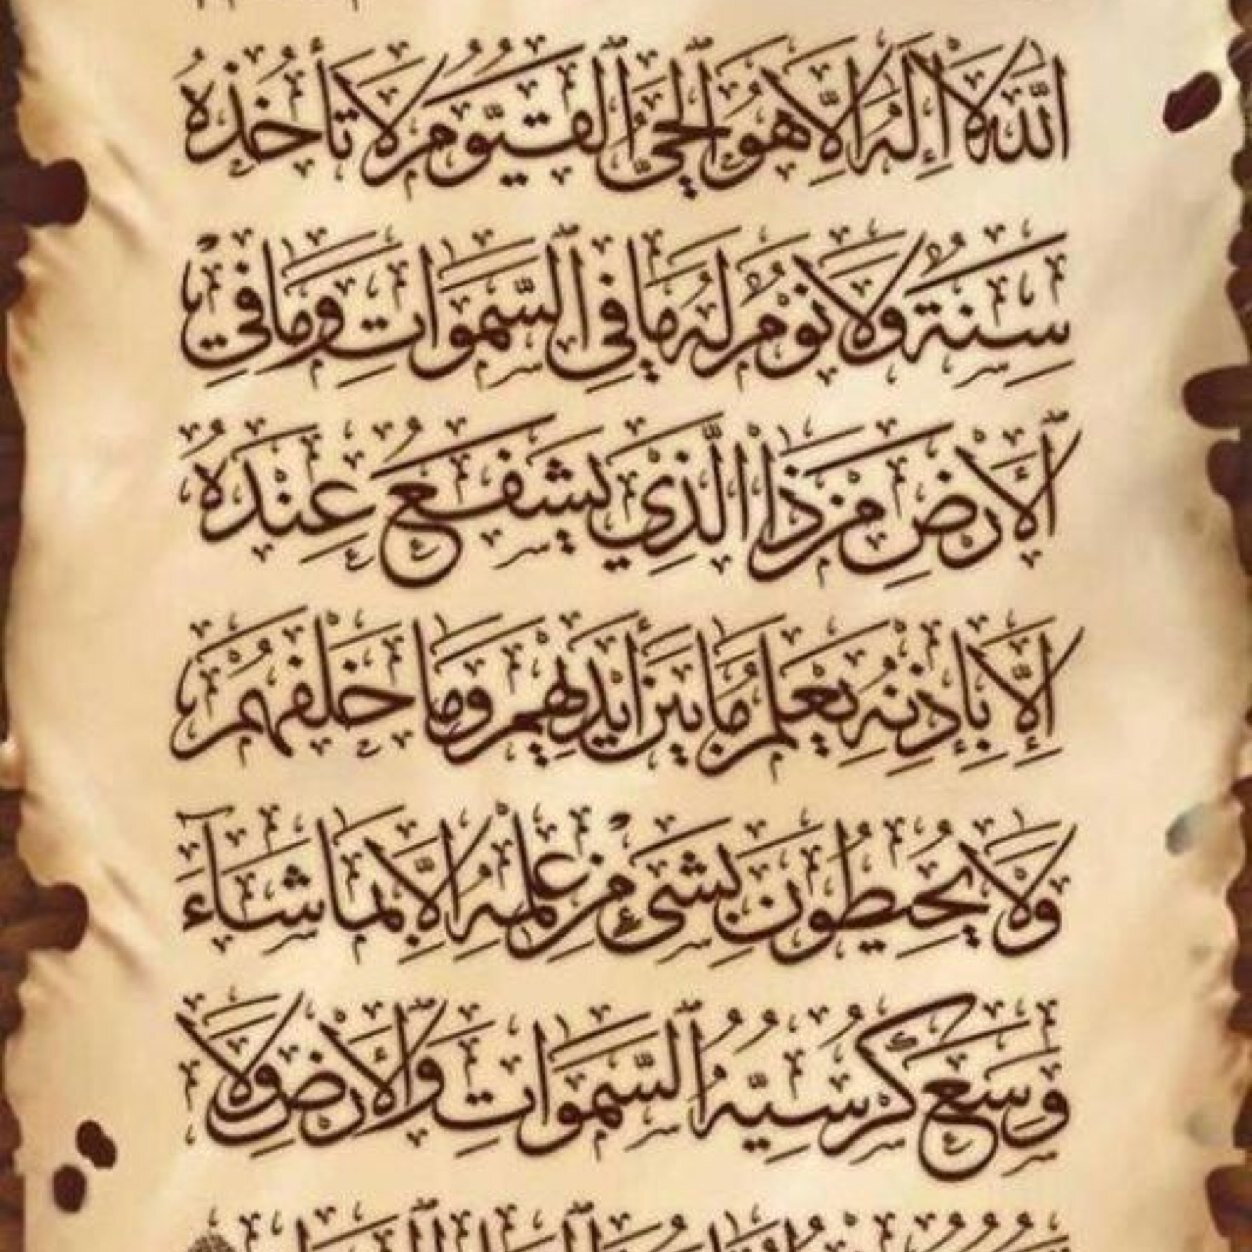 اللَّهُ لَا إِلَٰهَ إِلَّا هُوَ الْحَيُّ الْقَيُّومُ لَا تَأْخُذُهُ
سِنَةٌ وَلَا نَوْمٌ لَهُ مَا فِي السَّمٰوَاتِ وَمَا فِي
الْأَرْضِ مَنْ ذَا الَّذِي يَشْفَعُ عِنْدَهُ
إِلَّا بِإِذْنِهِ يَعْلَمُ مَا بَيْنَ أَيْدِيهِمْ وَمَا خَلْفَهُمْ
وَلَا يُحِيطُونَ بِشَيْءٍ مِنْ عِلْمِهِ إِلَّا بِمَا شَاءَ
وَسِعَ كُرْسِيُّهُ السَّمٰوَاتِ وَالْأَرْضَ وَلَا